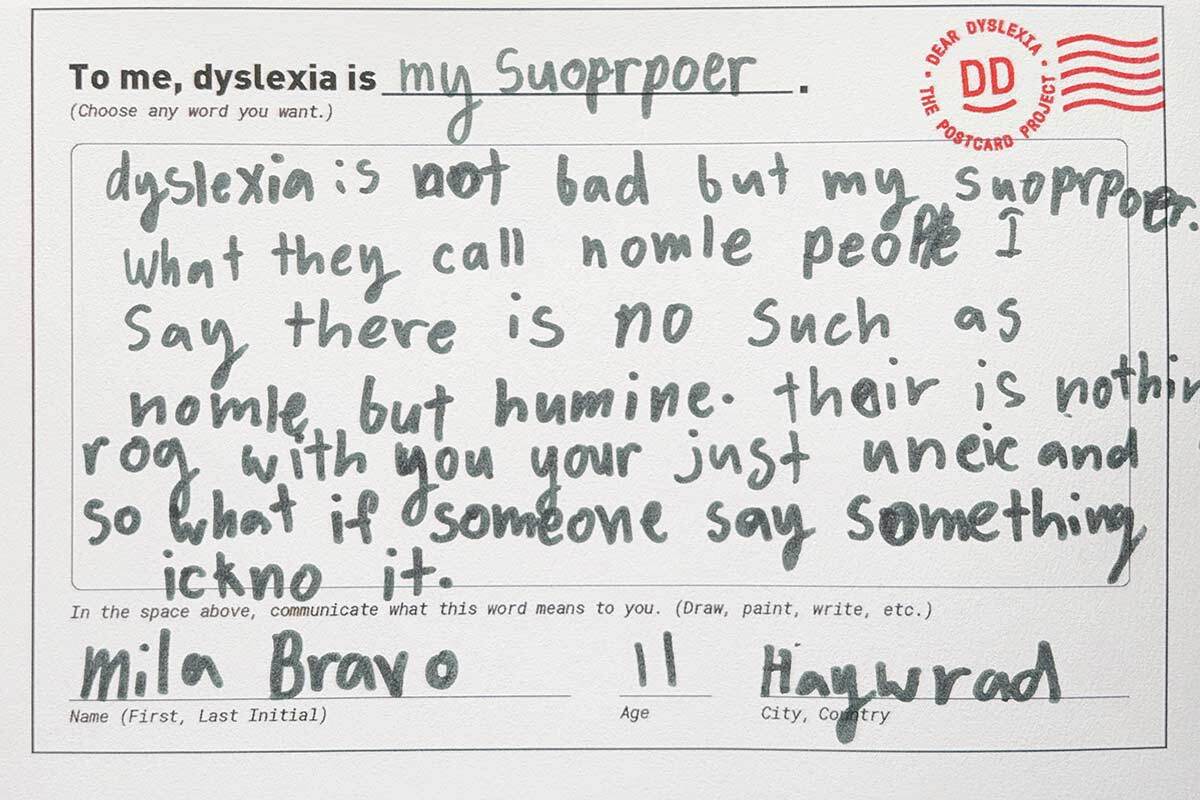 To me, dyslexia is my Suoprpoer.
(Choose any word you want.)
• DEAR DYSLEXIA • THE POSTCARD PROJECT
DD
dyslexia is not bad but my suoprpoer.
what they call nomle people I
Say there is no such as
nomle but humine. thair is nothin
rog with you your just uneic and
so what if someone say something
ickno it.
In the space above, communicate what this word means to you. (Draw, paint, write, etc.)
Mila Bravo 11 Haywrad
Name (First, Last Initial) Age City, Country